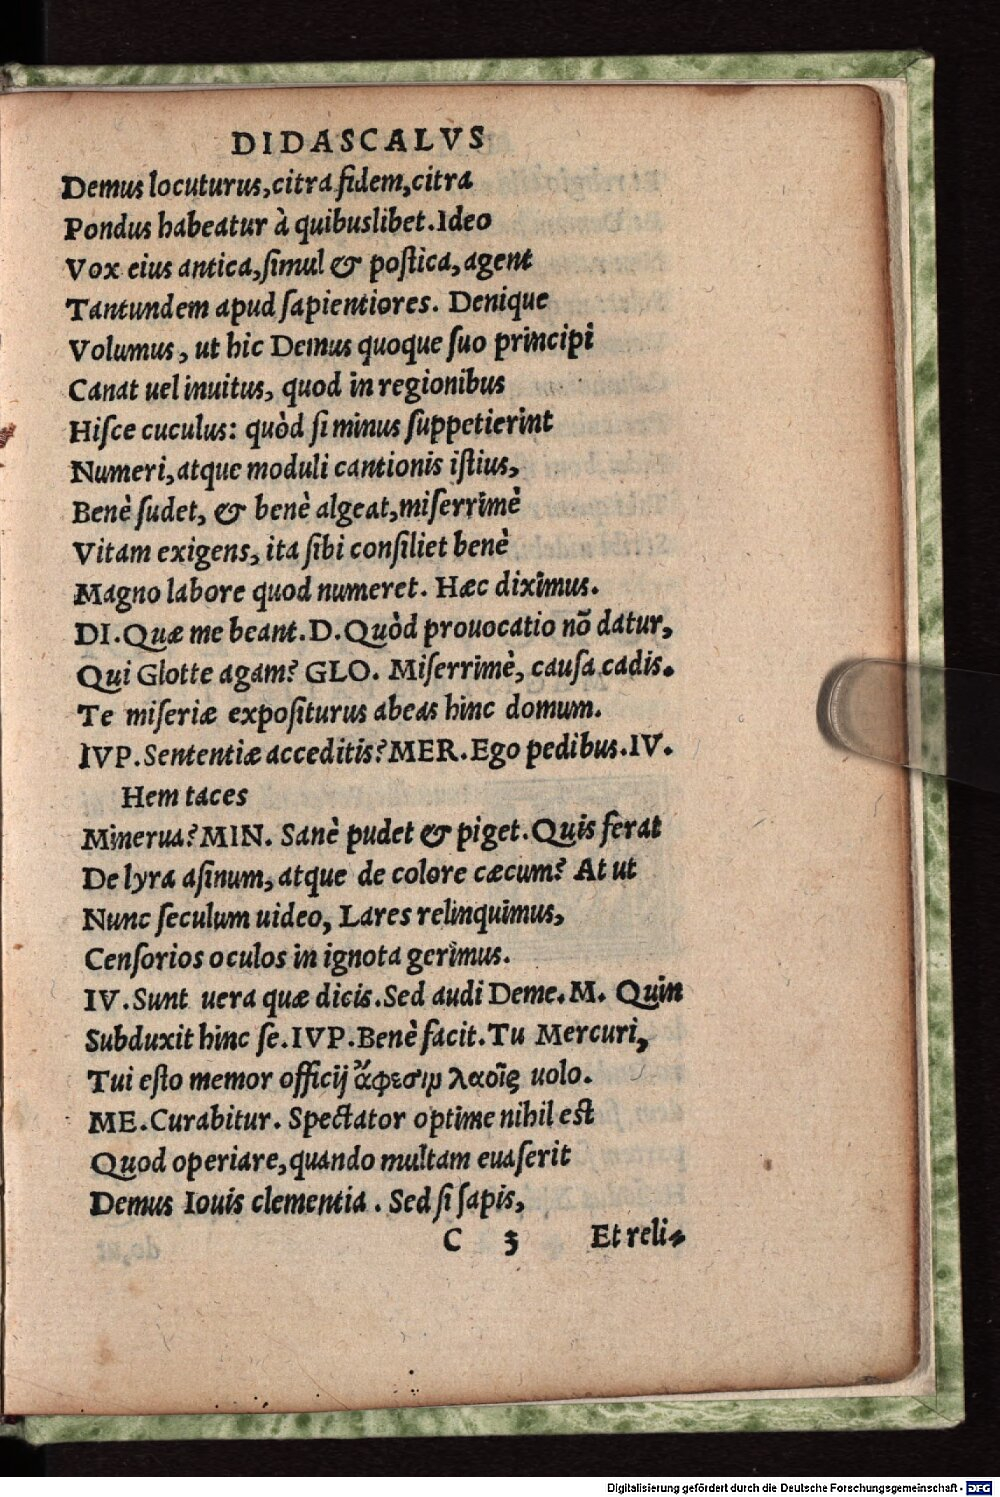 DIDASCALVS
Demus locuturus, citra fidem, citra
Pondus habeatur à quibuslibet. Ideo
Vox eius antica, ſimul & poſtica, agent
Tantundem apud ſapientiores. Denique
Volumus, ut hic Demus quoque ſuo principi
Canat uel inuitus, quod in regionibus
Hiſce cuculus: quòd ſi minus ſuppetierint
Numeri, atque moduli cantionis iſtius,
Benè ſudet, & benè algeat, miſerrimè
Vitam exigens, ita ſibi conſiliet benè
Magno labore quod numeret. Hæc diximus.
DI. Quæ me beant. D. Quòd prouocatio nõ datur,
Qui Glotte agam? GLO. Miſerrimè, cauſa cadis.
Te miſeriæ expoſiturus abeas hinc domum.
IVP. Sententiæ acceditis? MER. Ego pedibus. IV.
Hem taces
Minerua? MIN. Sanè pudet & piget. Quis ferat
De lyra aſinum, atque de colore cæcum? At ut
Nunc ſeculum uideo, Lares relinquimus,
Cenſorios oculos in ignota gerimus.
IV. Sunt uera quæ dicis. Sed audi Deme. M. Quin
Subduxit hinc ſe. IVP. Benè facit. Tu Mercuri,
Tui eſto memor officij ἄφεσιμ λαοῖς uolo.
ME. Curabitur. Spectator optime nihil eſt
Quod operiare, quando multam euaſerit
Demus Iouis clementia. Sed ſi ſapis,
C 3 Et reli-
Digitalisierung gefördert durch die Deutsche Forschungsgemeinschaft - DFG